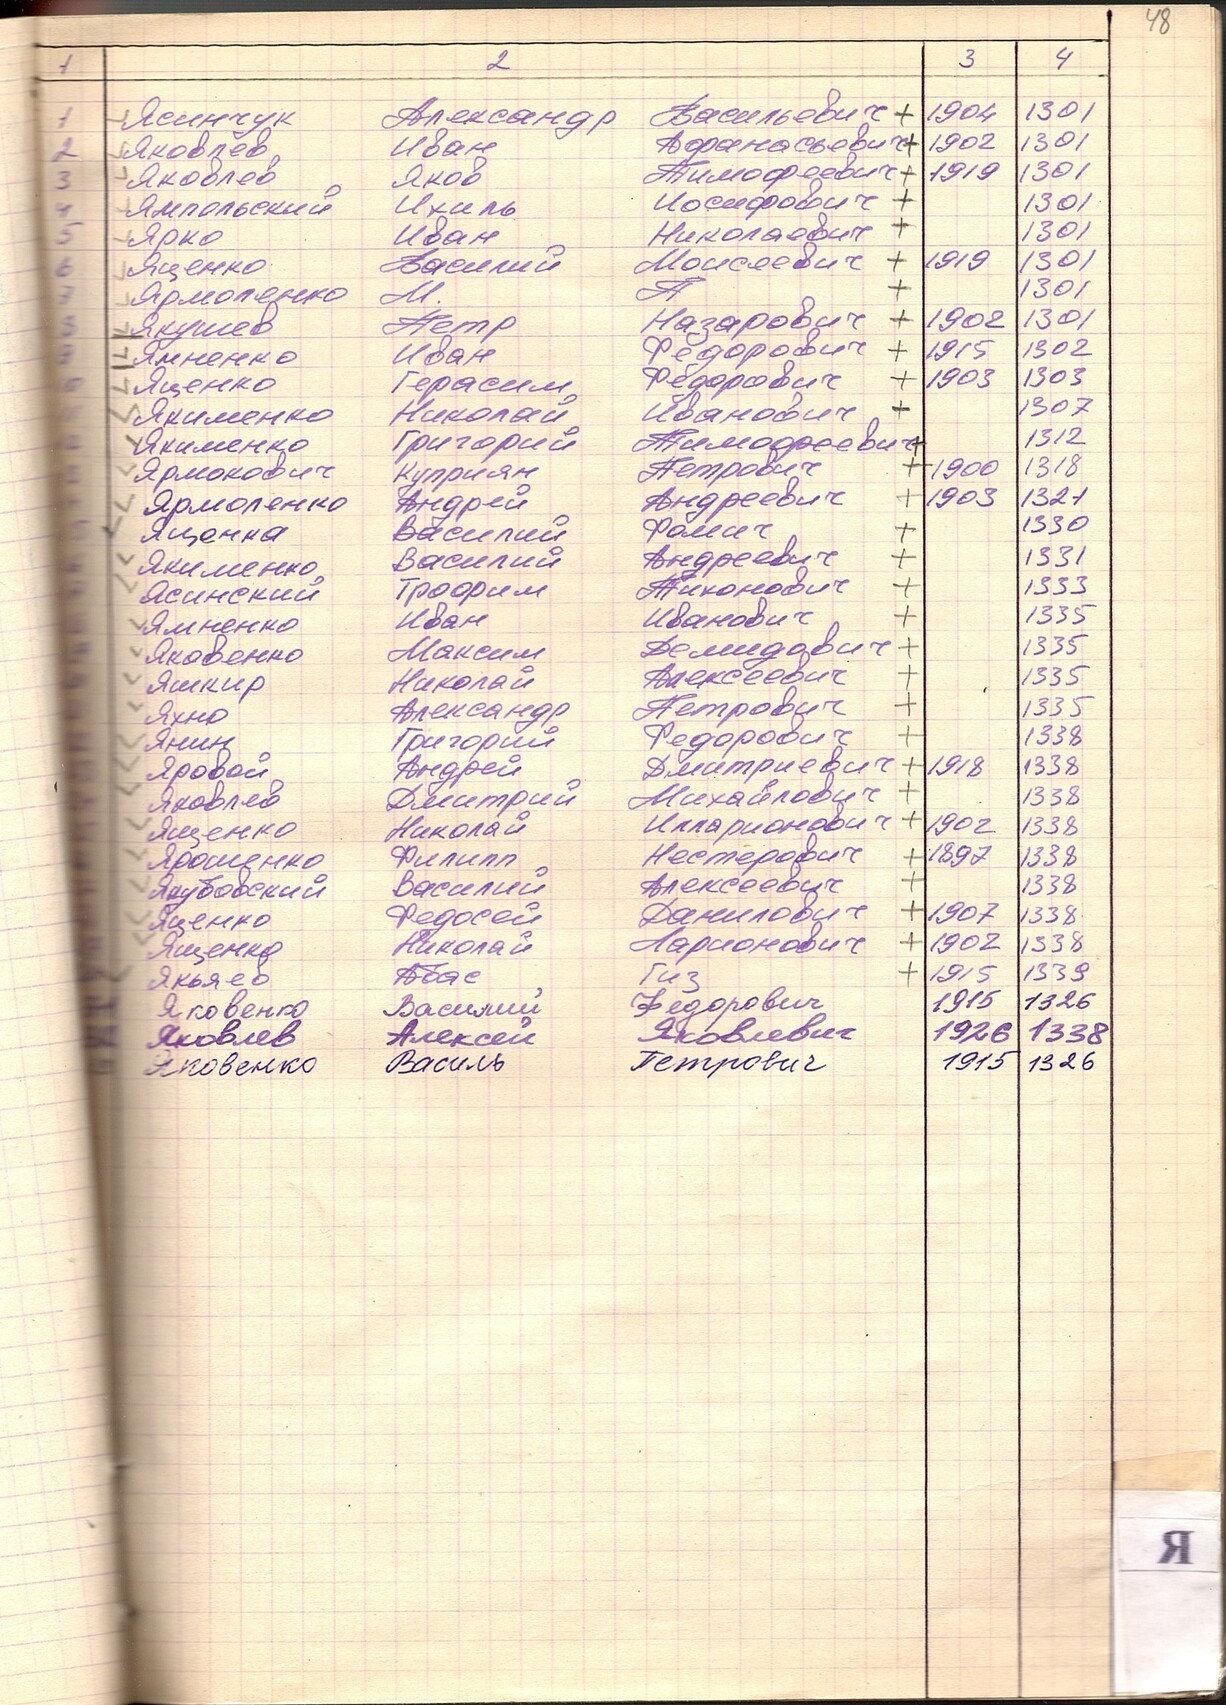 48
1 2 3 4
1 Ясинчук Александр Васильевич + 1904 1301
2 Яковлев Иван Афанасьевич + 1902 1301
3 Яковлев Яков Тимофеевич + 1919 1301
4 Ямпольский Ихиль Иосифович + 1301
5 Ярко Иван Николаевич + 1301
6 Яценко Василий Моисеевич + 1919 1301
7 Ярмоленко М. П + 1301
8 Якушев Петр Назарович + 1902 1301
9 Ямненко Иван Федорович + 1915 1302
Яценко Герасим Федорович + 1903 1303
Якименко Николай Иванович + 1307
Якименко Григорий Тимофреевич + 1312
Ярмокович Куприян Петрович + 1900 1318
Ярмоленко Андрей Андреевич + 1903 1321
Яценка Василий Фомич + 1330
Якименко Василий Андреевич + 1331
Ясинский Трофим Тихонович + 1333
Ямненко Иван Иванович + 1335
Яковенко Максим Демидович + 1335
Яшкир Николай Алексеевич + 1335
Яхно Александр Петрович + 1335
Янин Григорий Федорович + 1338
Яровой Андрей Дмитриевич + 1918 1338
Яковлев Дмитрий Михайлович + 1338
Ященко Николай Илларионович + 1902 1338
Ярошенко Филипп Нестерович + 1897 1338
Якубовский Василий Алексеевич + 1338
Яценко Федосей Данилович + 1907 1338
Ященко Николай Ларионович + 1902 1338
Якьяев Абас Гиз + 1915 1339
Яковенко Василий Федорович 1915 1326
Яковлев Алексей Яковлевич 1926 1338
Яковенко Василь Петрович 1915 1326
Я